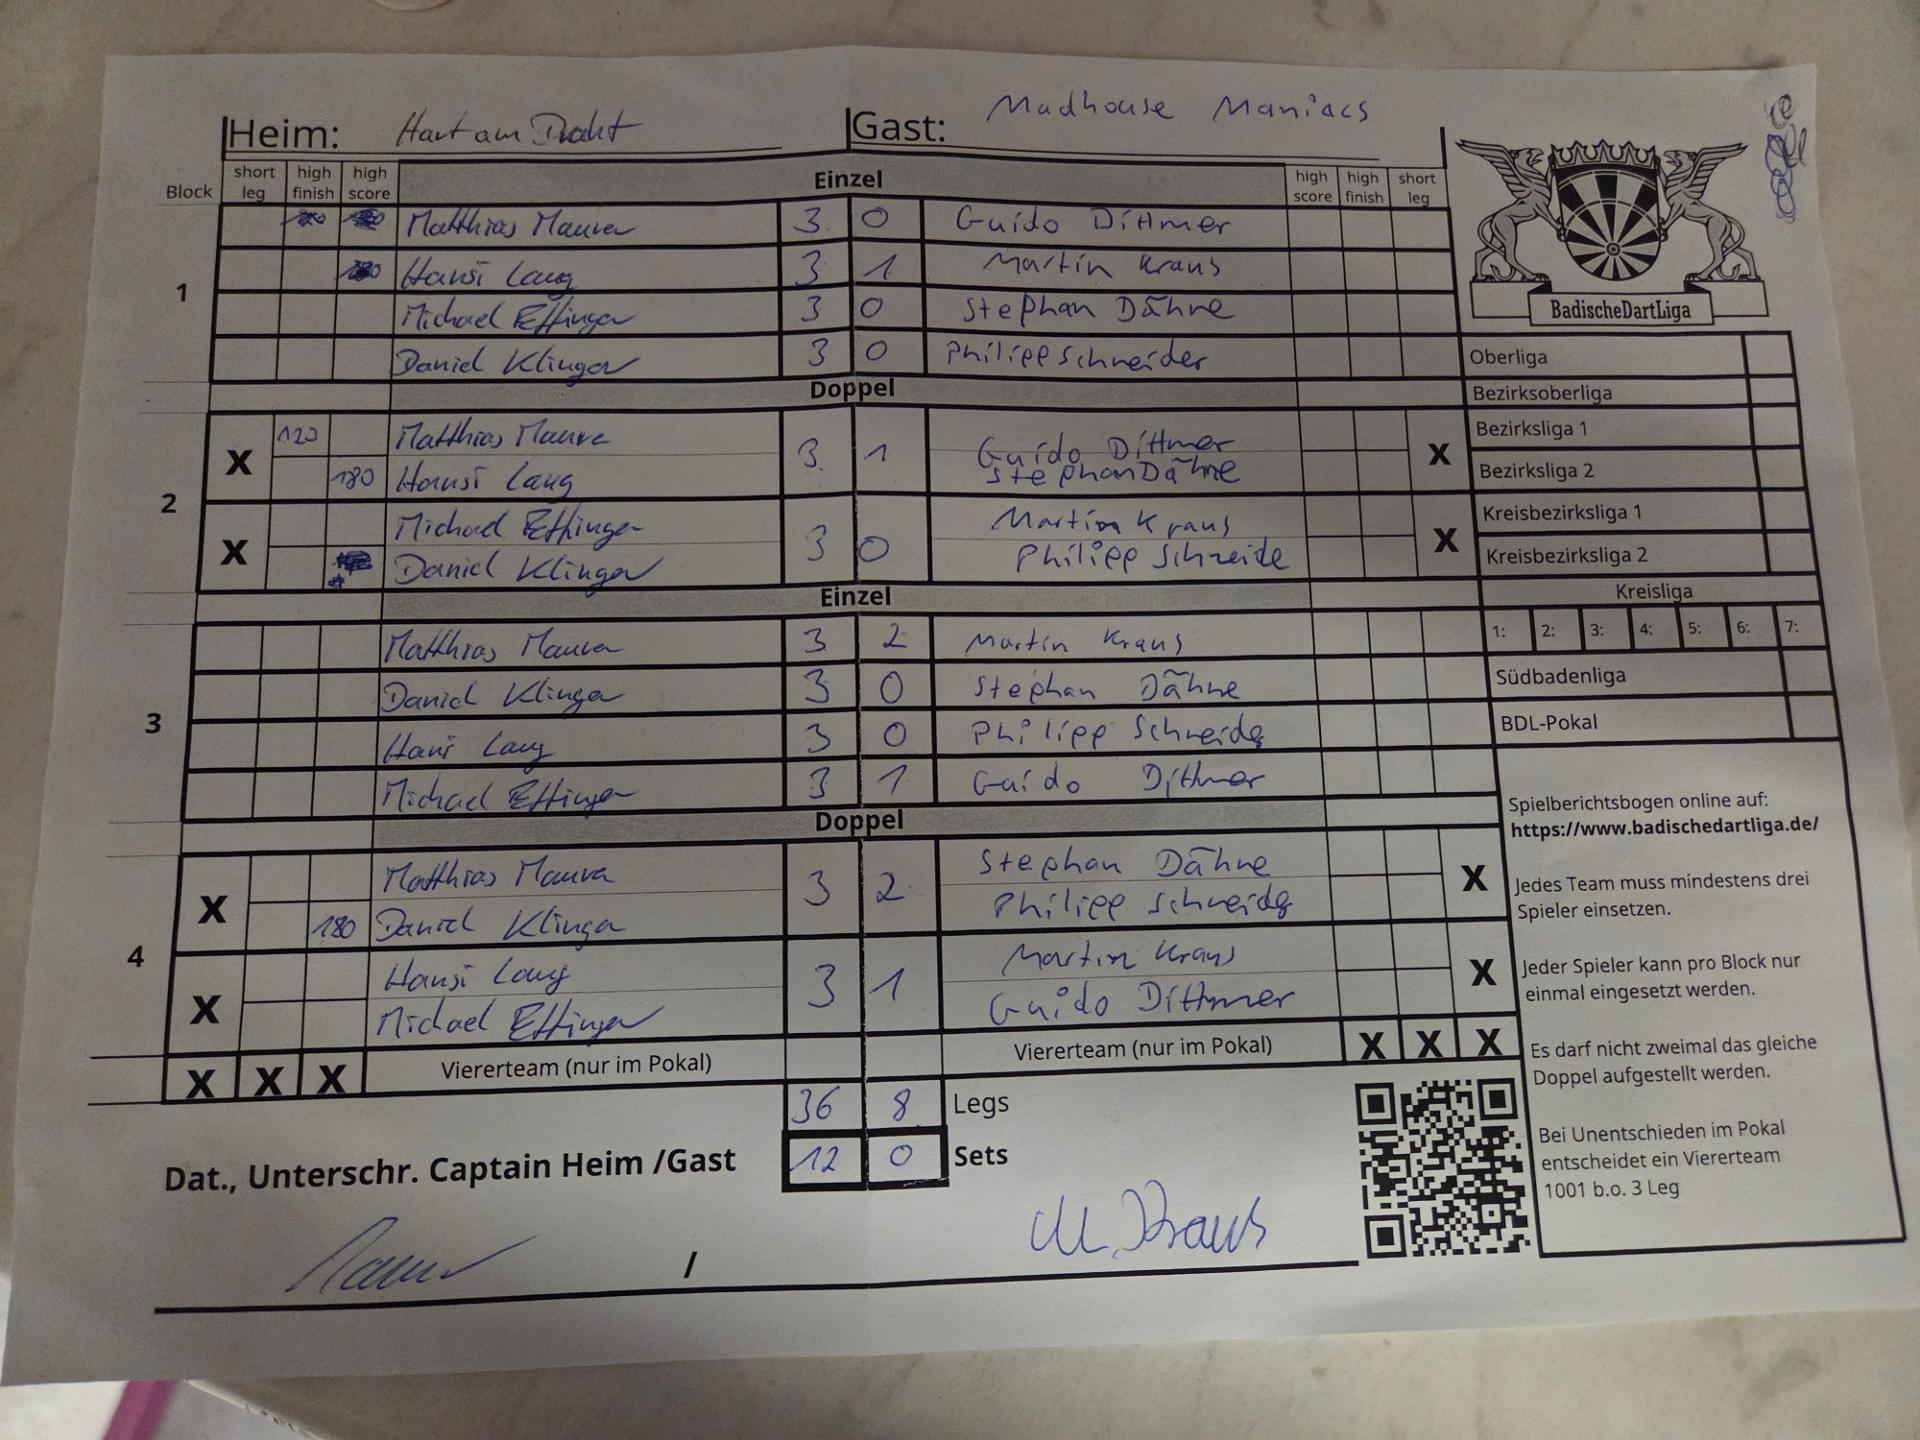 Heim: Hart am Draht Gast: Madhouse Maniacs
Block short leg high finish high score Einzel high score high finish short leg
1
Matthias Maurer 3 0 Guido Dittmer
Hansi Lang 3 1 Martin Kraus
Michael Effinger 3 0 Stephan Dähne
Daniel Klinger 3 0 Philipp Schneider
Doppel
2
X 120 Matthias Maurer 3 1 Guido Dittmer X
180 Hansi Lang Stephan Dähne
X Michael Effinger 3 0 Martin Kraus X
Daniel Klinger Philipp Schneide
Einzel
3
Matthias Maurer 3 2 Martin Kraus
Daniel Klinger 3 0 Stephan Dähne
Hansi Lang 3 0 Philipp Schneider
Michael Effinger 3 1 Guido Dittmer
Doppel
4
X Matthias Maurer 3 2 Stephan Dähne X
180 Daniel Klinger Philipp Schneider
X Hansi Lang 3 1 Martin Kraus X
Michael Effinger Guido Dittmer
X X X Viererteam (nur im Pokal) Viererteam (nur im Pokal) X X X
36 8 Legs
12 0 Sets
Dat., Unterschr. Captain Heim /Gast
/ M. Kraus
BadischeDartLiga
Oberliga
Bezirksoberliga
Bezirksliga 1
Bezirksliga 2
Kreisbezirksliga 1
Kreisbezirksliga 2
Kreisliga
1: 2: 3: 4: 5: 6: 7:
Südbadenliga
BDL-Pokal
Spielberichtsbogen online auf:
https://www.badischedartliga.de/
Jedes Team muss mindestens drei
Spieler einsetzen.
Jeder Spieler kann pro Block nur
einmal eingesetzt werden.
Es darf nicht zweimal das gleiche
Doppel aufgestellt werden.
Bei Unentschieden im Pokal
entscheidet ein Viererteam
1001 b.o. 3 Leg